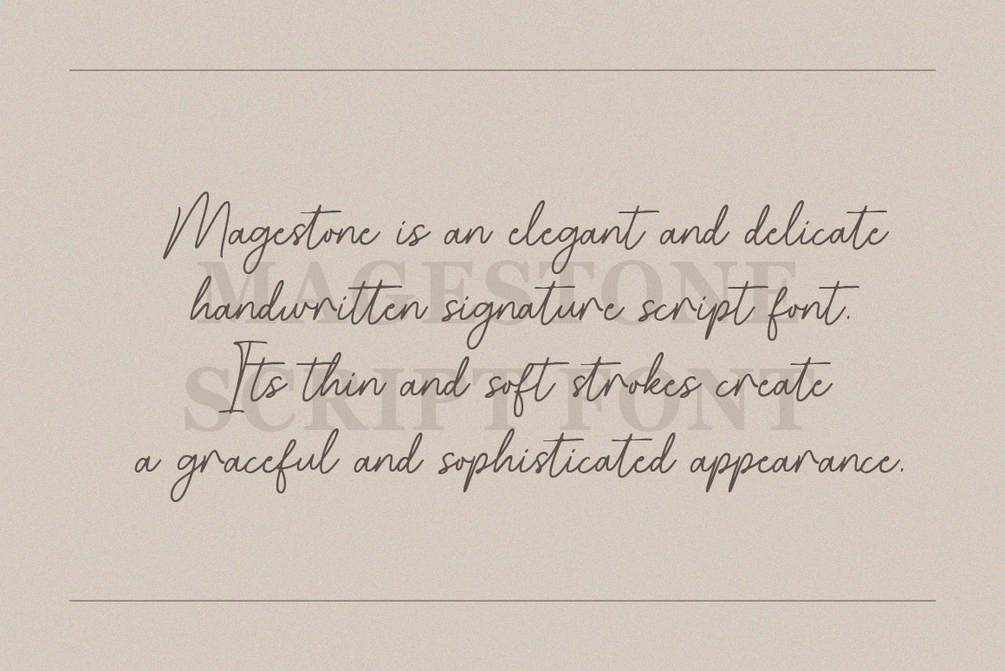 Magestone is an elegant and delicate
MAGESTONE
handwritten signature script font.
Its thin and soft strokes create
SCRIPT FONT
a graceful and sophisticated appearance.